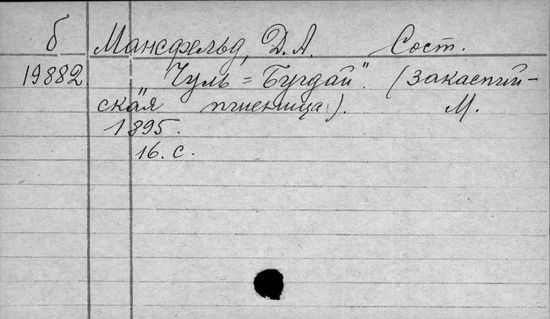 б Мансфельд, Д.А. Сост.
19882. "Чуль=Бугдай". (Закаспий-
ская пшеница). М.
1895.
16. с.